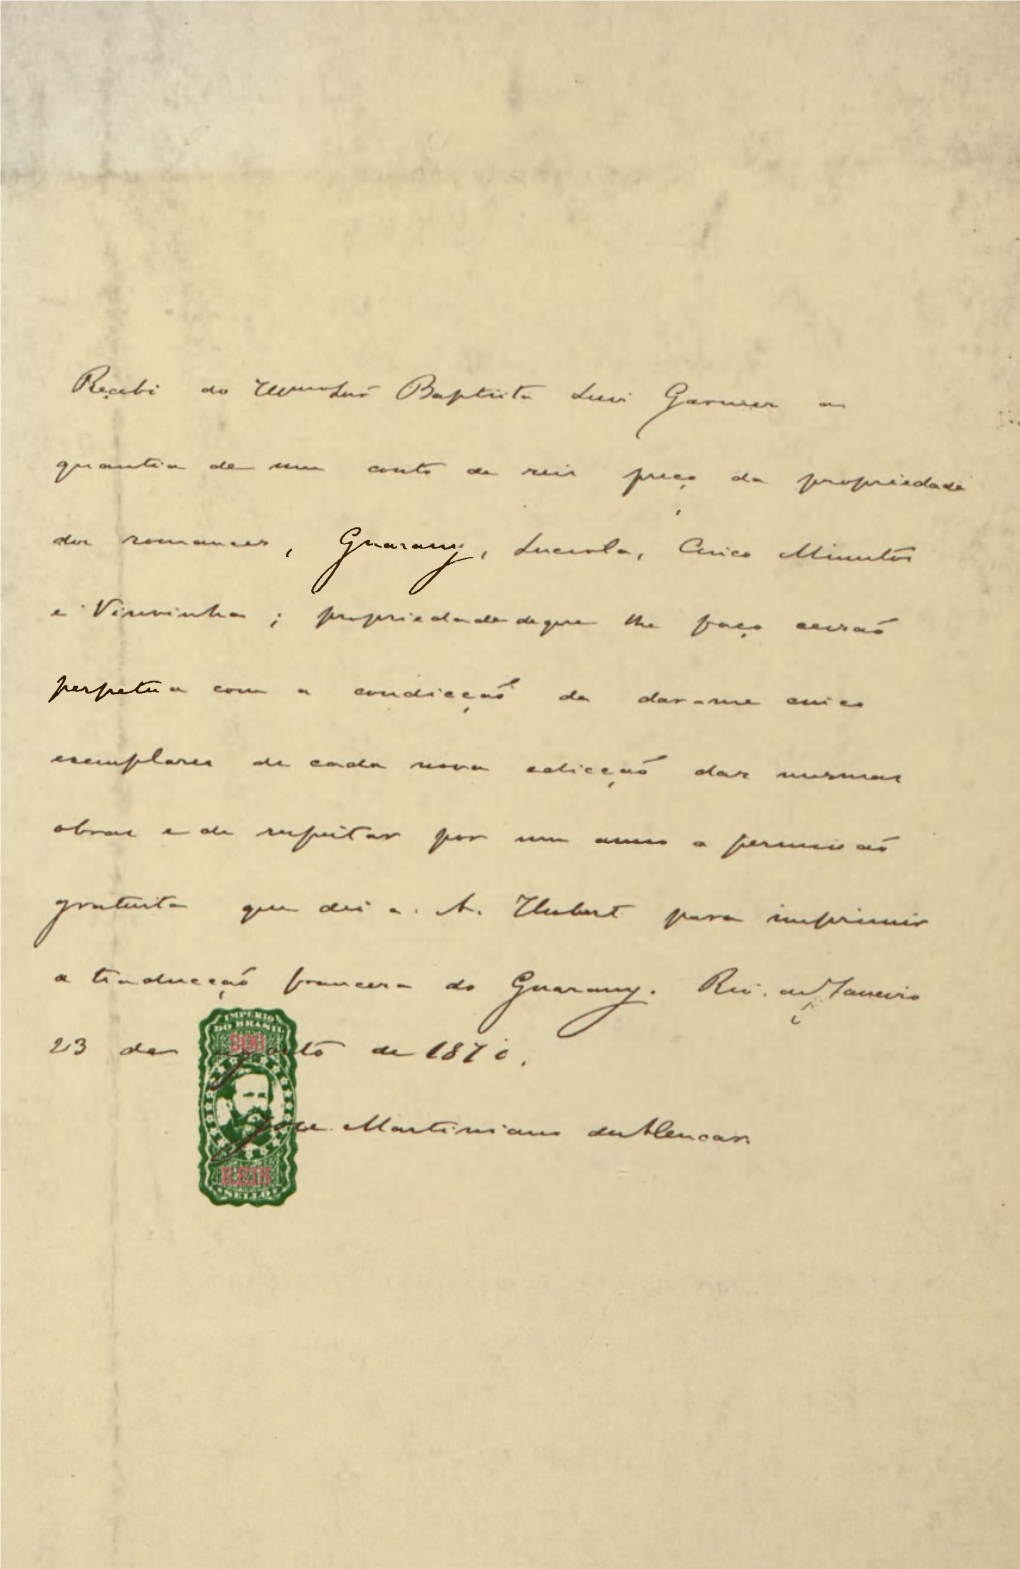 Recebi do Illmo Snr Baptista Luis Garnier a
quantia de um conto de reis preço da propriedade
dos romances, Guarany, Luciola, Cinco Minutos
e Viuvinha; propriedade de que lhe faço cessão
perpetua com a condicção de dar-me cinco
exemplares de cada nova edicção das mesmas
obras e de respeitar por um anno a permissão
gratuita que dei a A. Hubert para imprimir
a traducção franceza do Guarany. Rio de Janeiro
23 de agosto de 1870.
José Martiniano de Alencar
IMPERIO
DO BRASIL
200
REIS
SELLO